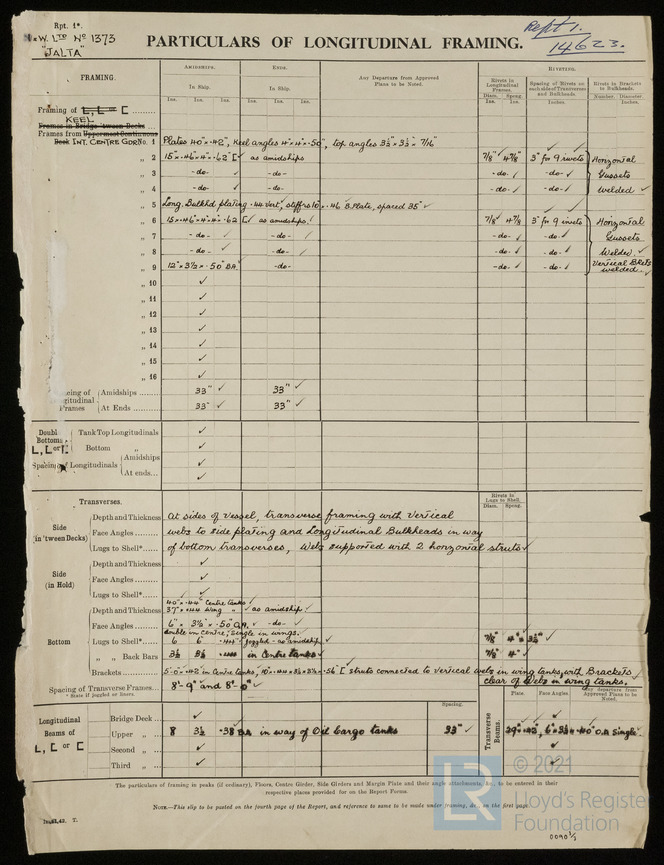 Rpt. 1*.
W. LTD No 1373
"JALTA"
PARTICULARS OF LONGITUDINAL FRAMING.
Rept 1.
14623.
FRAMING.
AMIDSHIPS.
ENDS.
In Ship.
In Ship.
Ins. Ins. Ins.
Ins. Ins. Ins.
Any Departure from Approved
Plans to be Noted.
RIVETING.
Rivets in
Longitudinal
Frames.
Spacing of Rivets on
each side of Transverses
and Bulkheads.
Rivets in Brackets
to Bulkheads.
Diam. Spcng.
Ins. Ins.
Inches.
Number. Diameter
Inches.
Framing of L, L or [
KEEL
Frames in Bridge 'tween Decks
Frames from Uppermost Continuous
Deck INT. CENTRE GDR No. 1 Plates 40" x .42", Keel angles 4" x 4" x .50", top angles 3½" x 3½" x 7/16"
„ 2 15" x .46 x 4" x .62" [ ✓ as amidships 7/8" 4 7/8 3" for 9 rivets Horizontal
„ 3 -do- ✓ -do- -do- ✓ -do- ✓ Gussets
„ 4 -do- ✓ -do- -do- ✓ -do- ✓ welded ✓
„ 5 Long. Bulkhd plating .44 Vert, stiffrs 10 x .46 B.Plate, spaced 35" ✓
„ 6 15 x .46 x 4 x .62 [ ✓ as amidships. 7/8 4 7/8 3" for 9 rivets Horizontal
„ 7 -do- ✓ -do- ✓ -do- ✓ -do- ✓ Gussets
„ 8 -do- ✓ -do- ✓ -do- ✓ -do- ✓ Welded ✓
„ 9 12" x 3½ x .50" B.A. -do- -do- ✓ -do- ✓ Vertical Bkts
welded. ✓
„ 10 ✓
„ 11 ✓
„ 12 ✓
„ 13 ✓
„ 14 ✓
„ 15 ✓
„ 16 ✓
cing of
gitudinal
Frames
Amidships 33" ✓ 33" ✓
At Ends 33" ✓ 33" ✓
Doubl
Bottoms
L, L or [
Tank Top Longitudinals ✓
Bottom „ ✓
Spacing of Longitudinals
Amidships ✓
At ends ✓
TRANSVERSES.
Rivets in
Lugs to Shell.
Diam. Spcng.
Side
(in 'tween Decks)
Depth and Thickness At sides of vessel, transverse framing with vertical
Face Angles webs to side plating and Longitudinal Bulkheads in way
Lugs to Shell* of bottom transverses, Webs supported with 2 horizontal struts ✓
Side
(in Hold)
Depth and Thickness ✓
Face Angles ✓
Lugs to Shell* ✓
Bottom
40" x .44" Centre tanks
Depth and Thickness 37" x .44 wing „ ✓ as amidship ✓
Face Angles 6" x 3½" x .50 O.A. ✓ -do- ✓
double in centre, single in wings.
Lugs to Shell* 6 6 .44 joggled - as amidship ✓ 7/8" 4" x 3½" ✓
„ „ Back Bars 3½ 3½ .44 in Centre tanks ✓ 7/8" 4"
Brackets 5'-0" x .42 in Centre tanks, 10" x .44 x 3½ x 3½ x .56 [ struts connected to vertical webs in wing tanks, with Brackets
clear of webs in wing tanks.
Spacing of Transverse Frames 8'-9" and 8'-0" ✓
* State if joggled or liners.
Spacing.
Plate. Face Angles.
Any departure from
Approved Plans to be
Noted.
Longitudinal
Beams of
L, L or [
Transverse
Beams.
Bridge Deck ✓ ✓
Upper „ 8 3½ .38 B.A. in way of Oil Cargo tanks 33" ✓ 29" x .42, 6" x 3½ x .40" O.A Single ✓
Second „ ✓ ✓
Third „ ✓ ✓
The particulars of framing in peaks (if ordinary), Floors, Centre Girder, Side Girders and Margin Plate and their angle attachments, &c., to be entered in their
respective places provided for on the Report Forms.
NOTE.—This slip to be pasted on the fourth page of the Report, and reference to same to be made under framing, &c., on the first page.
T.
© 2021
LR
Lloyd's Register
Foundation